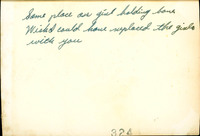 Same place as girl holding bone
Wish I could have replaced the girls
with you
324